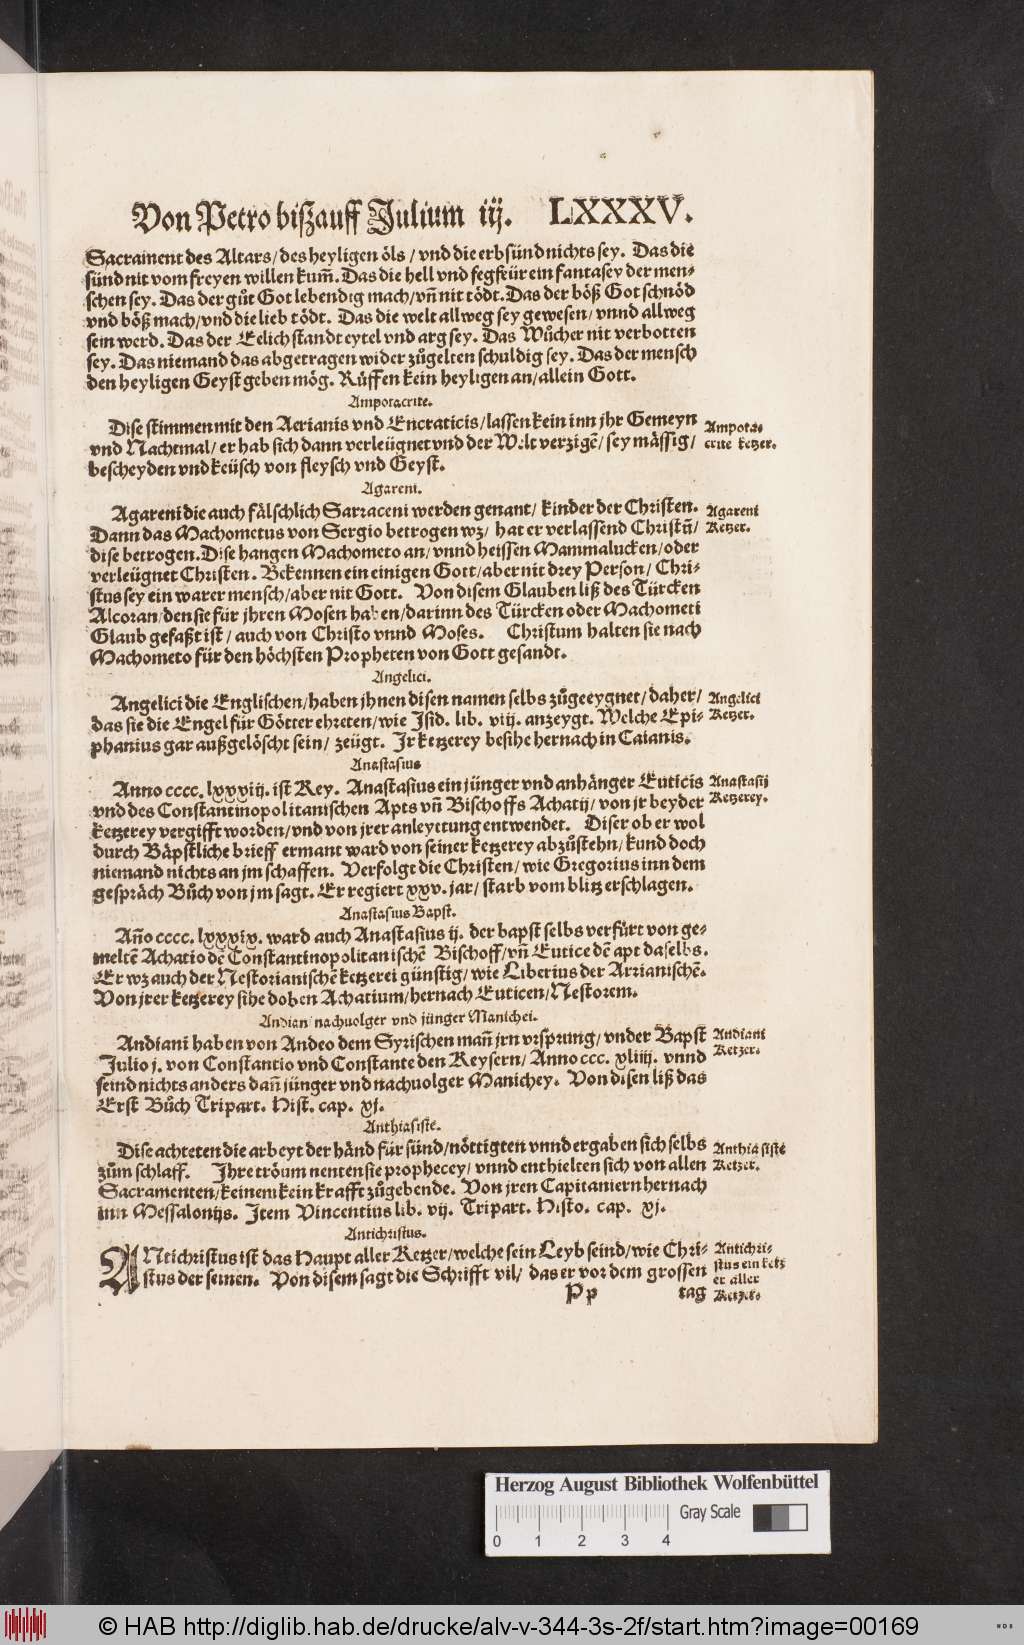 Von Petro biſzauff Julium iij. LXXXV.
Sacrament des Altars/ des heyligen öls / vnd die erbſünd nichts ſey. Das die
ſünd nit vom freyen willen kum̄. Das die hell vnd fegfeür ein fantaſey der men-
ſchen ſey. Das der gůt Got lebendig mach/ vn̄ nit tödt. Das der böß Got ſchnöd
vnd böß mach/ vnd die lieb tödt. Das die welt allweg ſey geweſen/ vnnd allweg
ſein werd. Das der Eelich ſtandt eytel vnd arg ſey. Das Wůcher nit verbotten
ſey. Das niemand das abgetragen wider zůgelten ſchuldig ſey. Das der menſch
den heyligen Geyſt geben mög. Růffen kein heyligen an/ allein Gott.
Ampotacrite.
Diſe ſtimmen mit den Aerianis vnd Encraticis/ laſſen kein inn jhr Gemeyn
vnd Nachtmal/ er hab ſich dann verleügnet vnd der Welt verzigē/ ſey mäſſig/
beſcheyden vnd keüſch von fleyſch vnd Geyſt.
Ampota-
crite ketzer.
Agareni.
Agareni die auch fälſchlich Sarraceni werden genant/ kinder der Chriſten.
Dann das Machometus von Sergio betrogen wz/ hat er verlaſſend Chriſtū/
diſe betrogen. Diſe hangen Machometo an/ vnnd heiſſen Mammalucken/ oder
verleügnet Chriſten. Bekennen ein einigen Gott/ aber nit drey Perſon/ Chri-
ſtus ſey ein warer menſch/ aber nit Gott. Von diſem Glauben liß des Türcken
Alcoran/ den ſie für jhren Moſen haben/ darinn des Türcken oder Machometi
Glaub gefaßt iſt/ auch von Chriſto vnnd Moſes. Chriſtum halten ſie nach
Machometo für den höchſten Propheten von Gott geſandt.
Agareni
Ketzer.
Angelici.
Angelici die Engliſchen/ haben jhnen diſen namen ſelbs zůgeeygnet/ daher/
das ſie die Engel für Götter ehreten/ wie Iſid. lib. viij. anzeygt. Welche Epi-
phanius gar außgelöſcht ſein/ zeügt. Jr ketzerey beſihe hernach in Caianis.
Angelici
Ketzer.
Anaſtaſius
Anno cccc. lxxxiij. iſt Key. Anaſtaſius ein jünger vnd anhänger Euticis
vnd des Conſtantinopolitaniſchen Apts vn̄ Biſchoffs Achatij/ von jr beyder
ketzerey vergifft worden/ vnd von jrer anleyttung entwendet. Diſer ob er wol
durch Bäpſtliche brieff ermant ward von ſeiner ketzerey abzůſtehn/ kund doch
niemand nichts an jm ſchaffen. Verfolgt die Chriſten/ wie Gregorius inn dem
geſpräch Bůch von jm ſagt. Er regiert xxv. jar/ ſtarb vom blitz erſchlagen.
Anaſtaſij
Ketzerey.
Anaſtaſius Bapſt.
Año cccc. lxxxix. ward auch Anaſtaſius ij. der bapſt ſelbs verfürt von ge-
meltē Achatio dē Conſtantinopolitaniſchē Biſchoff/ vn̄ Eutice dē apt daſelbs.
Er wz auch der Neſtorianiſchē ketzerei günſtig/ wie Liberius der Arrianiſchē.
Von jrer ketzerey ſihe doben Achatium/ hernach Euticen/ Neſtorem.
Andian nachuolger vnd jünger Manichei.
Andiani haben von Andeo dem Syriſchen man̄ jrn vrſprung/ vnder Bapſt
Julio j. von Conſtantio vnd Conſtante den Keyſern/ Anno ccc. xliiij. vnnd
ſeind nichts anders dan̄ jünger vnd nachuolger Manichey. Von diſen liß das
Erſt Bůch Tripart. Hiſt. cap. xj.
Andiani
Ketzer.
Anthiaſiſte.
Diſe achteten die arbeyt der händ für ſünd/ nöttigten vnnd ergaben ſich ſelbs
zům ſchlaff. Jhre tröum nenten ſie prophecey/ vnnd enthielten ſich von allen
Sacramenten/ keinem kein krafft zůgebende. Von jren Capitaniern hernach
inn Meſſalonijs. Item Vincentius lib. vij. Tripart. Hiſto. cap. xj.
Anthiaſiſte
Ketzer.
Antichriſtus.
ANtichriſtus iſt das Haupt aller Ketzer/ welche ſein Leyb ſeind/ wie Chri-
ſtus der ſeinen. Von diſem ſagt die Schrifft vil/ das er vor dem groſſen
Antichri-
ſtus ein ketz
er aller
Ketzer.
Pp tag
Herzog August Bibliothek Wolfenbüttel
0 1 2 3 4
Gray Scale
© HAB http://diglib.hab.de/drucke/alv-v-344-3s-2f/start.htm?image=00169